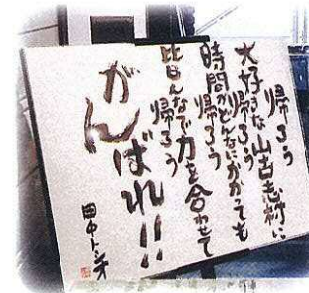 帰ろう
大好きな山古志村に
帰ろう
時間がどんなにかかっても
帰ろう
皆んなで力を合わせて
帰ろう
がんばれ!!
田中トシオ